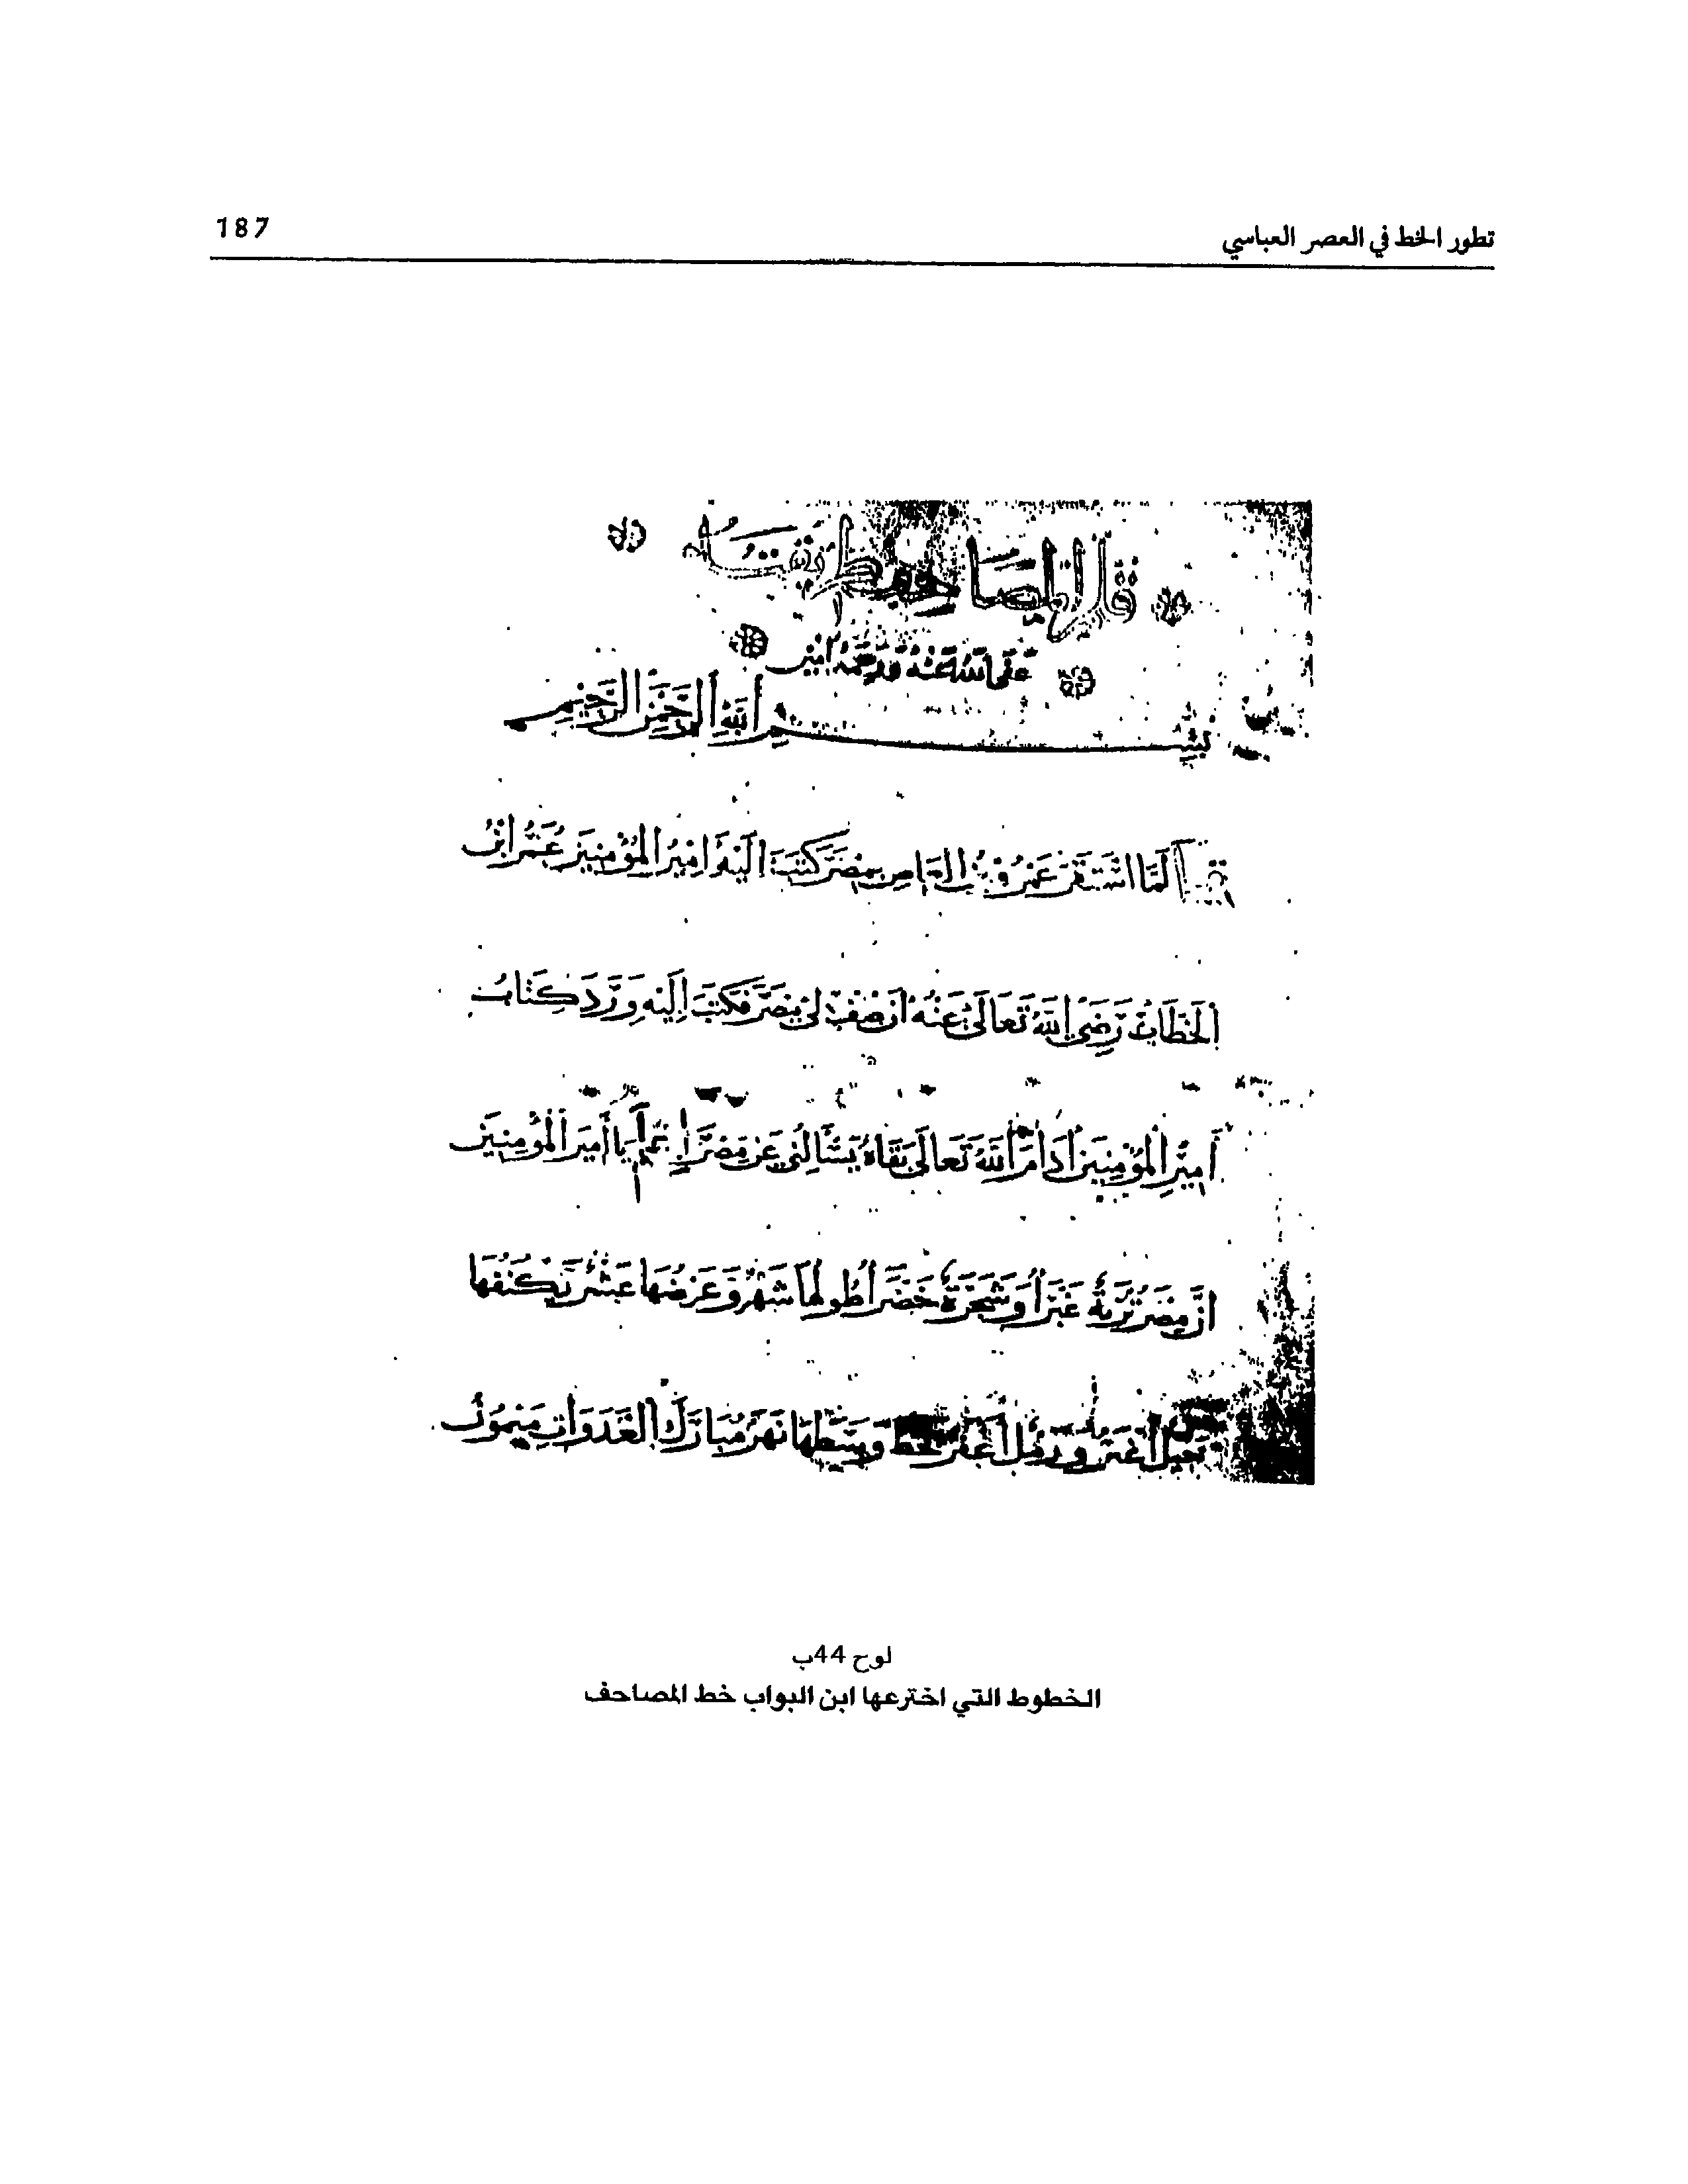 تطور الخط في العصر العباسي
187
قلم المصاحف طريقت
عفى الله عنه ورحمه امين
بسم الله الرحمن الرحيم
لما استقر عمرو بن العاص بمصر كتب اليه امير المؤمنين عمر ابن
الخطاب رضي الله تعالى عنه ان صف لي مصر فكتب اليه ورد كتاب
امير المؤمنين ادام الله تعالى بقاه يسالني عن مصر يا أمير المؤمنين
ان مصر تربة غبرا وشجرة خضرا طولها شهر وعرضها عشر يكنفها
جبل أغبر ورمل أعفر يخط وسطها نهر مبارك الغدوات ميمون
لوح 44ب
الخطوط التي اخترعها ابن البواب خط المصاحف